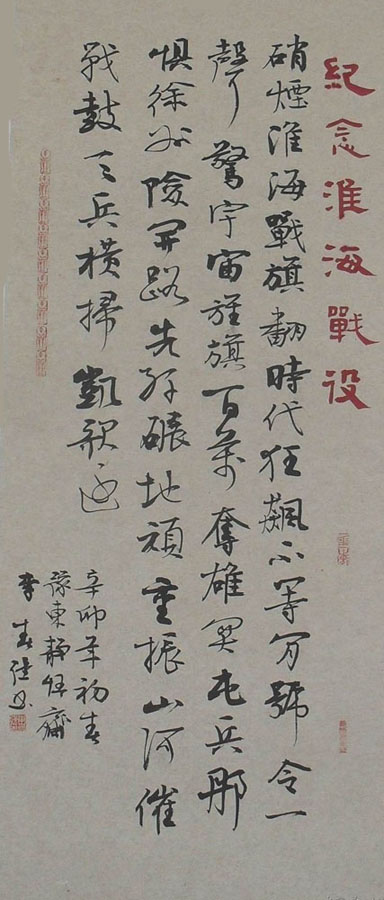 紀念淮海戰役
硝煙淮海戰旗翻時代狂飆不等闲號令一
聲驚宇宙旌旗百萬奪雄关屯兵那
惧徐州險開路先碾地頑重振山河催
戰鼓天兵橫掃凱歌還
辛卯年初春
豫東靜齋
李春书